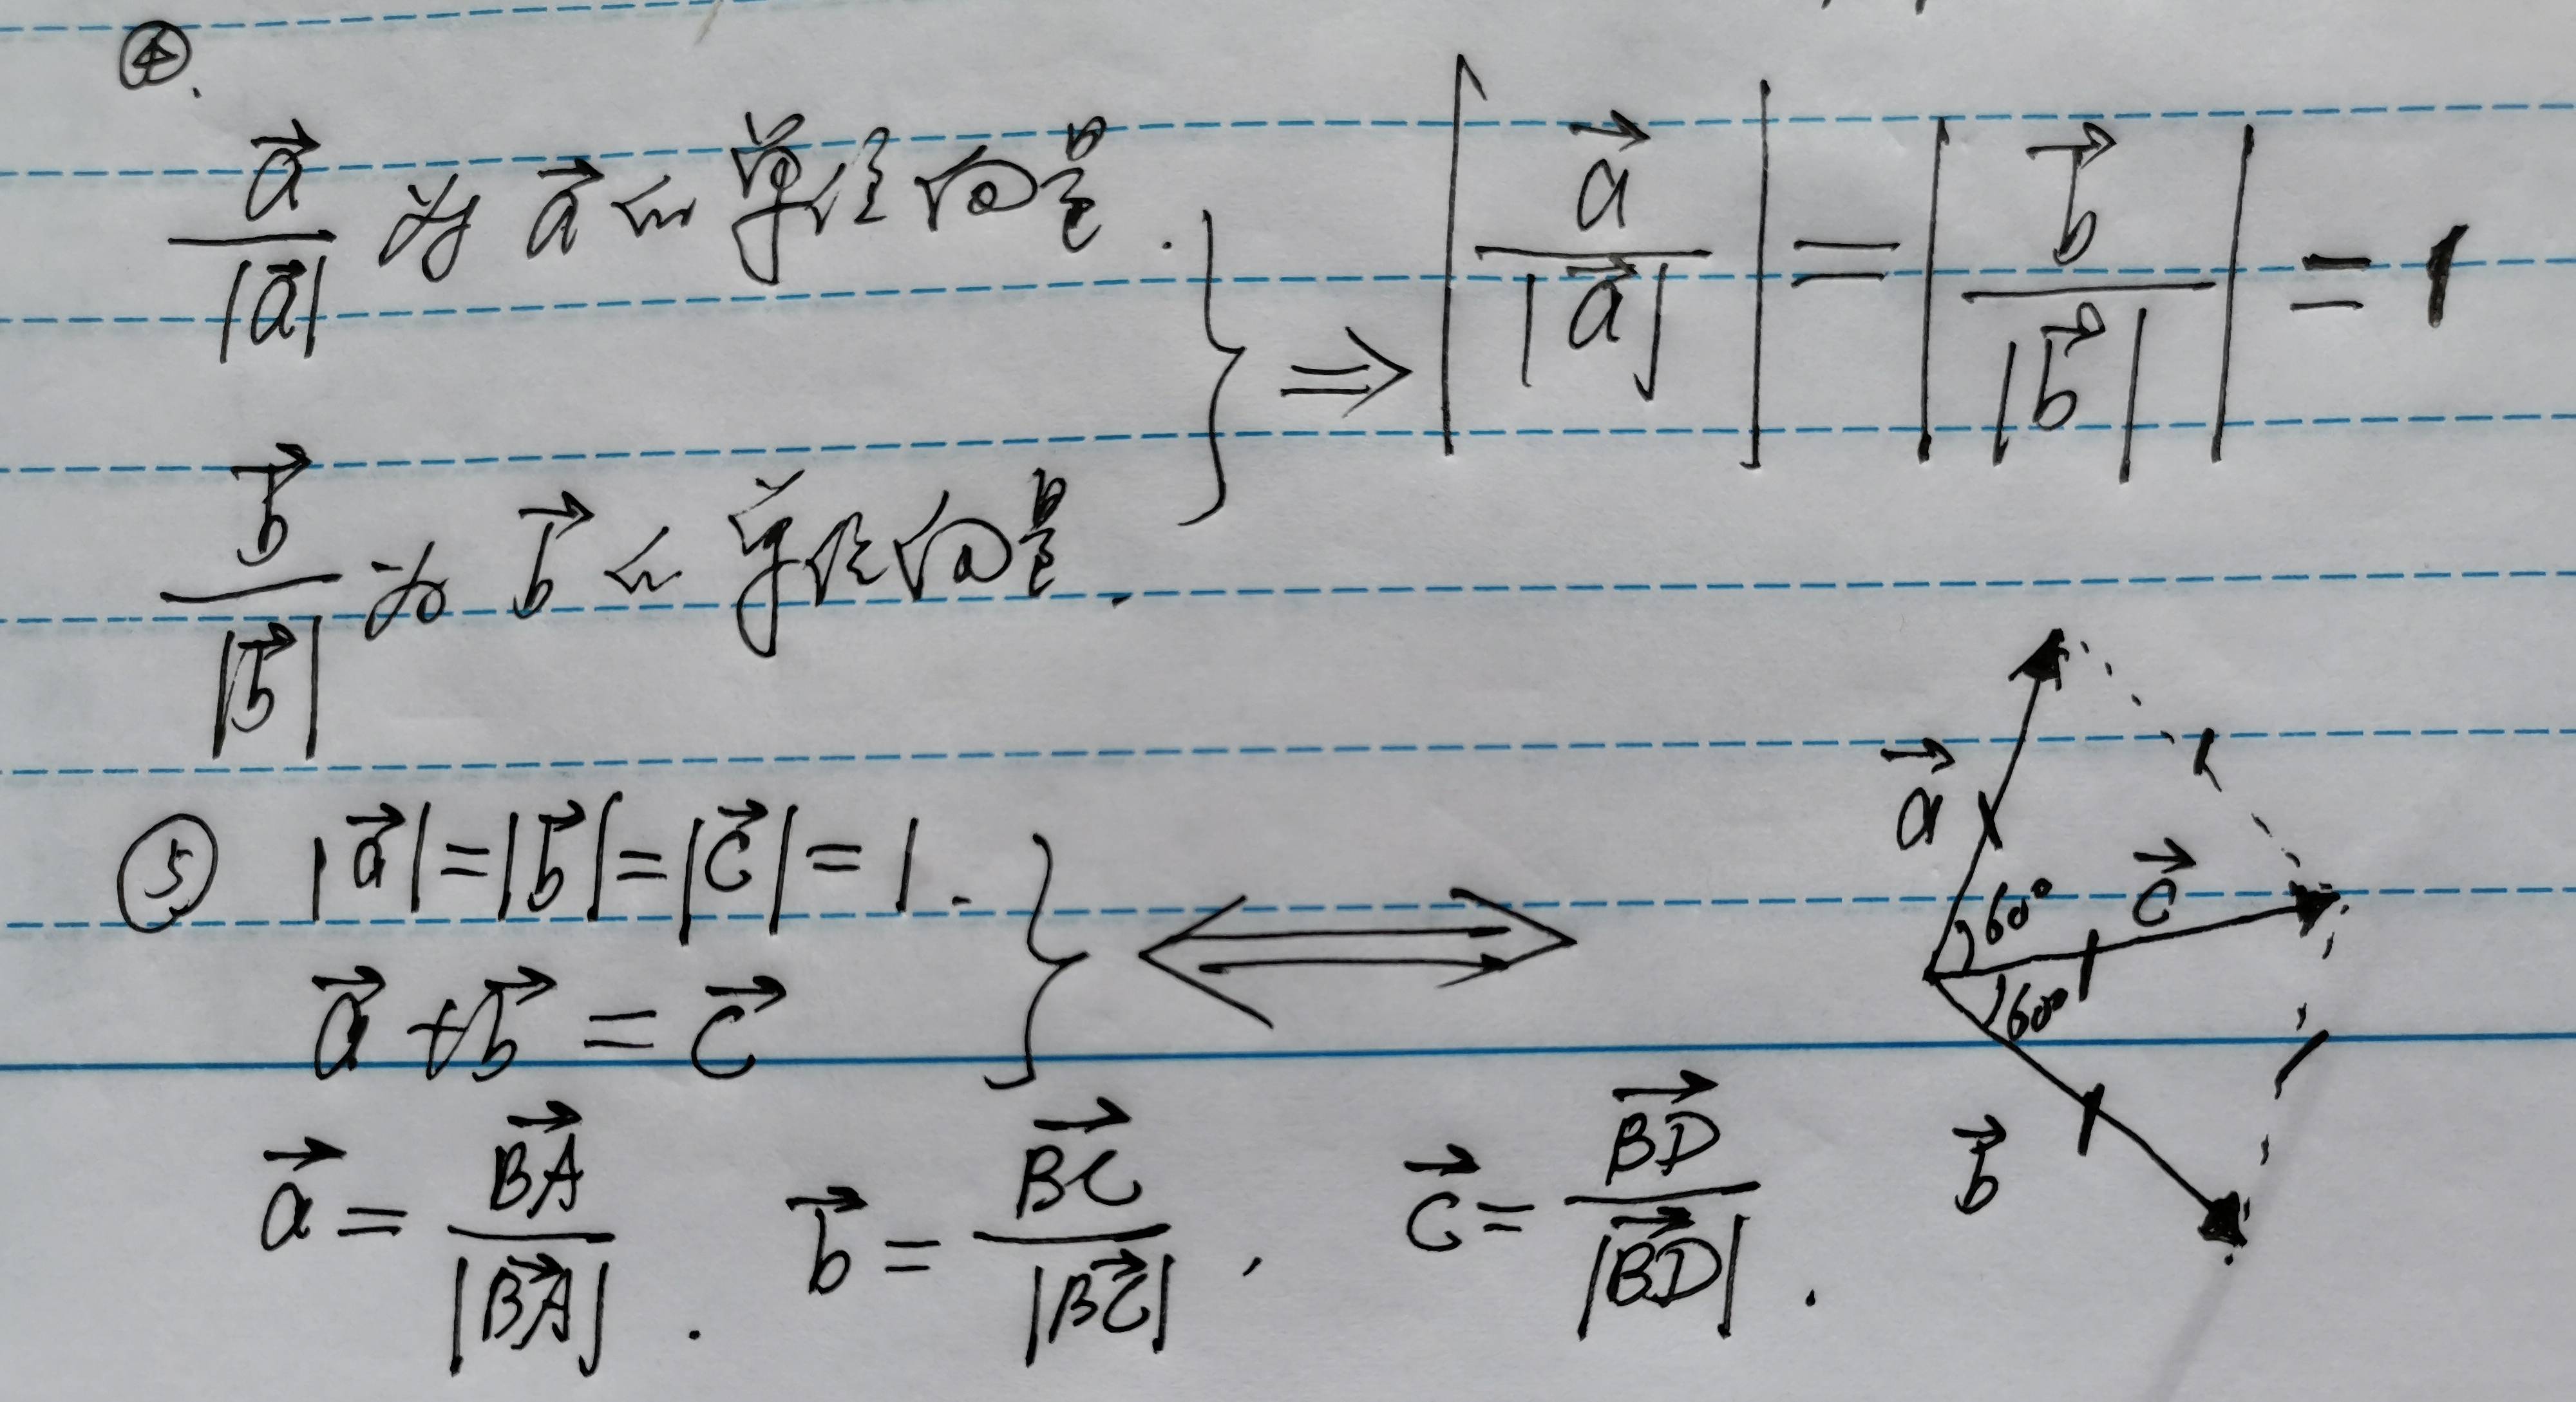 ④.
$\frac{\vec{a}}{|\vec{a}|}$ 为 $\vec{a}$ 的单位向量.
$\frac{\vec{b}}{|\vec{b}|}$ 为 $\vec{b}$ 的单位向量.
} ⇒ $\left|\frac{\vec{a}}{|\vec{a}|}\right| = \left|\frac{\vec{b}}{|\vec{b}|}\right| = 1$
⑤ $|\vec{a}|=|\vec{b}|=|\vec{c}|=1$.
$\vec{a}+\vec{b}=\vec{c}$
} ⟺
$\vec{a}$
60° $\vec{c}$
60°
$\vec{b}$
$\vec{a}=\frac{\vec{BA}}{|\vec{BA}|}$. $\vec{b}=\frac{\vec{BC}}{|\vec{BC}|}$, $\vec{c}=\frac{\vec{BD}}{|\vec{BD}|}$.